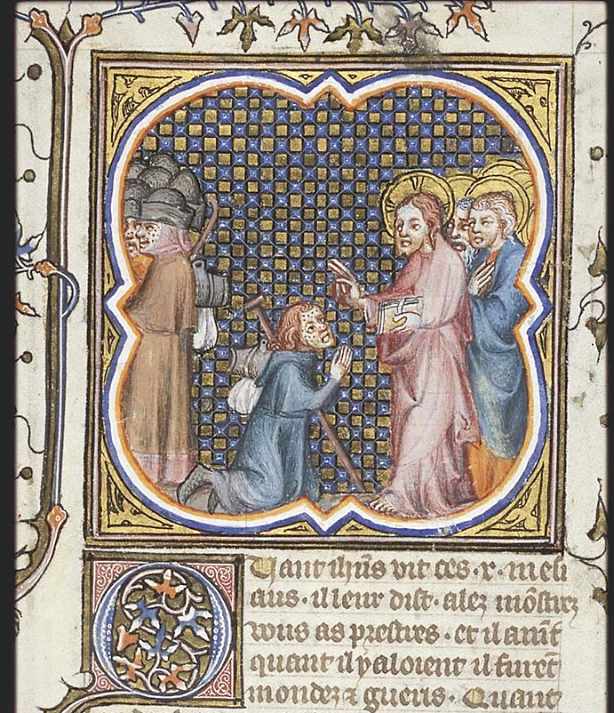 Quant ihũs vit ces ·x· mesi
aus · il leur dist · alez mõstrez
vous as prestres · et il auit̃
quant il y aloient il furẽt
mondez ⁊ gueris · Quant